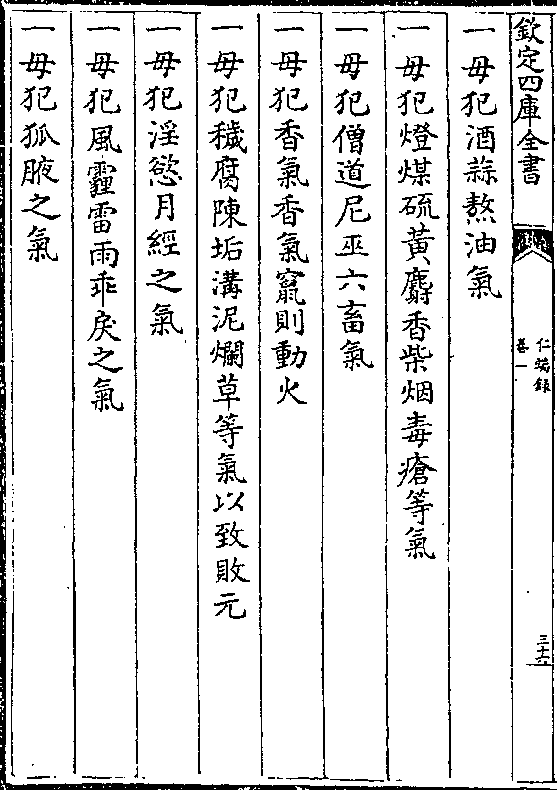 欽定四庫全書
仁端錄
卷一
三十六
一毋犯酒蒜熬油氣
一毋犯燈煤硫黄麝香柴烟毒瘡等氣
一毋犯僧道尼巫六畜氣
一毋犯香氣香氣竄則動火
一毋犯穢腐陳垢溝泥爛草等氣以致敗元
一毋犯淫慾月經之氣
一毋犯風霾雷雨乖戾之氣
一毋犯狐腋之氣